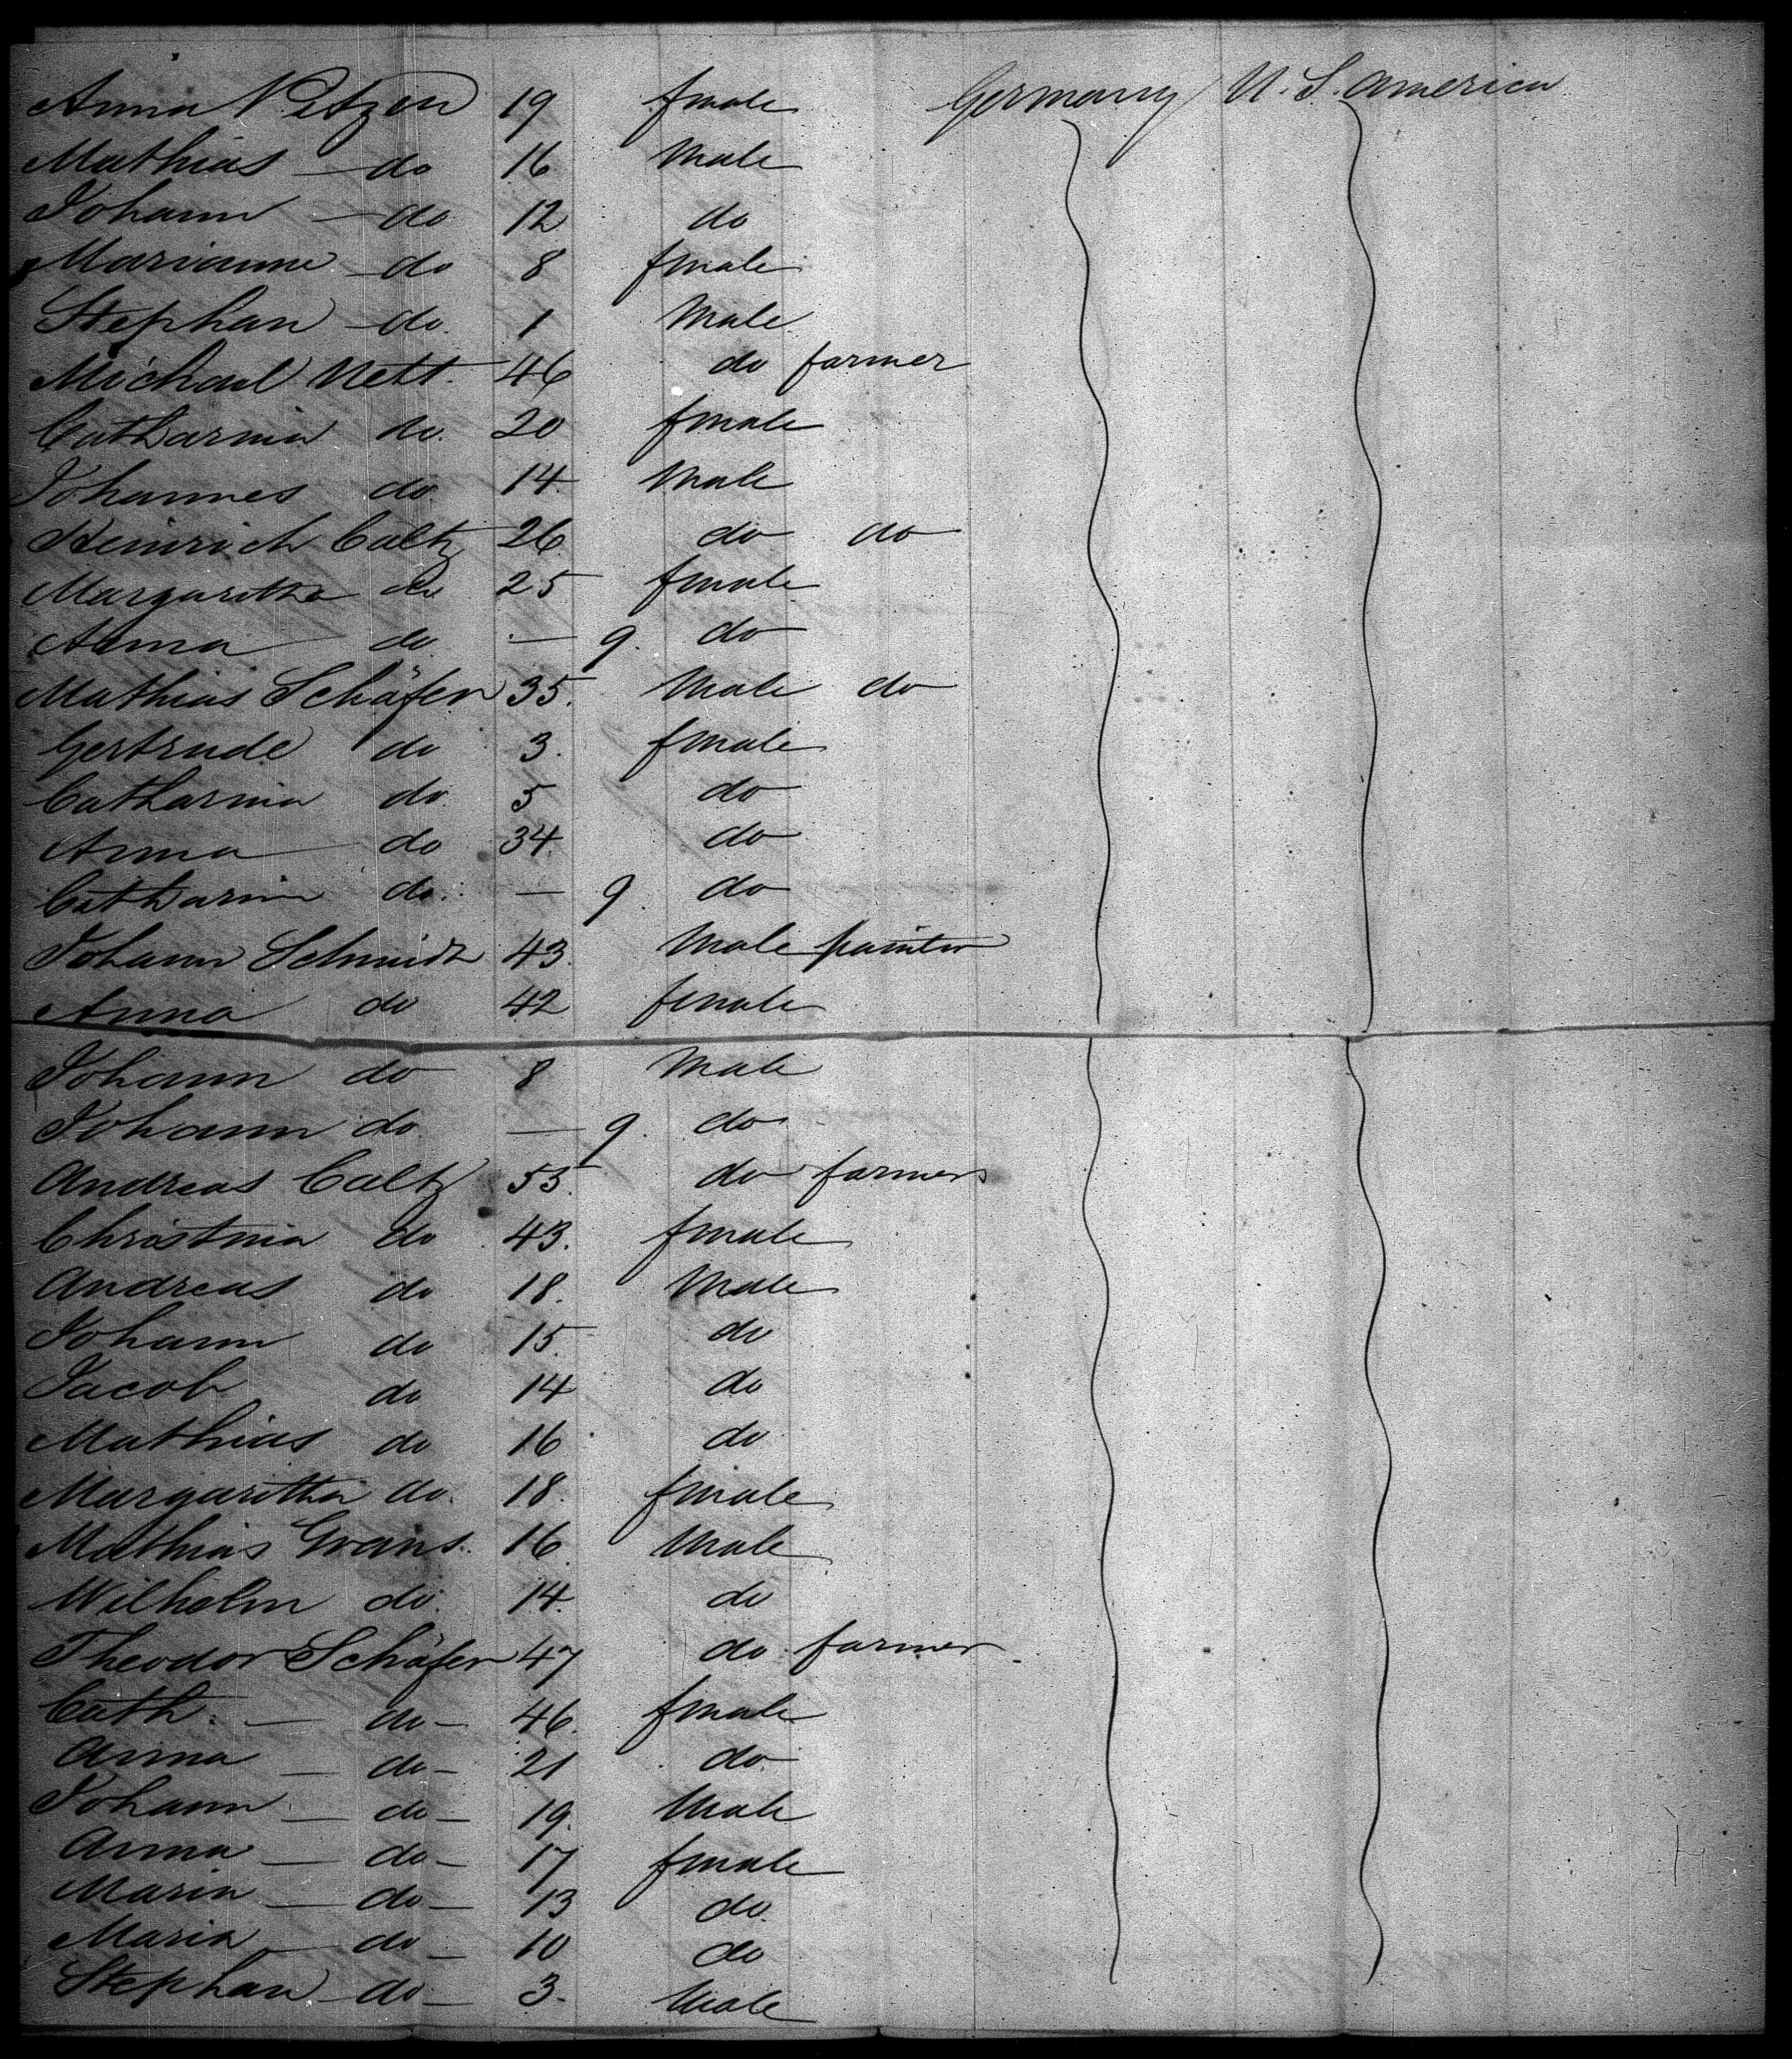 Anna Pitzen 19 female Germany U. S. America
Mathias — do 16 Male
Johann — do 12 do
Marianne — do 8 female
Stephan — do. 1 Male
Michael Nett. 46 do farmer
Catharina do. 20 female
Johannes do 14 Male
Heinrich Caltz 26 do do
Margaretha do 25 female
Anna do — 9. do
Mathias Schäfer 35. Male do
Gertrude do 3. female
Catharina do 5 do
Anna do 34. do
Catharina do. — 9. do
Johann Schmidt 43. Male painter
Anna do 42 female
Johann do 8 Male
Johann do — 9. do
Andreas Caltz 55. do farmer
Christina do 43. female
Andreas do 18. Male
Johann do 15. do
Jacob do 14 do
Mathias do 16 do
Margaretha do. 18. female
Mathias Grans. 16. Male
Wilhelm do. 14. do
Theodor Schäfer 47 do farmer
Cath. — do — 46. female
Anna — do — 21 do.
Johann — do — 19. Male
Anna — do — 17 female
Maria — do — 13 do.
Maria — do — 10 do
Stephan — do — 3. Male